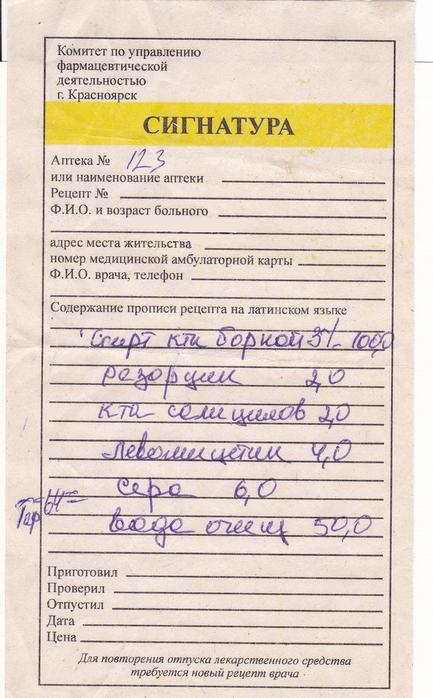 Комитет по управлению
фармацевтической
деятельностью
г. Красноярск
СИГНАТУРА
Аптека № 123
или наименование аптеки
Рецепт №
Ф.И.О. и возраст больного
адрес места жительства
номер медицинской амбулаторной карты
Ф.И.О. врача, телефон
Содержание прописи рецепта на латинском языке
Спирт к-ты борной 3%
Резорцин 2,0
к-та салицилов 2,0
Левомицетин 4,0
Сера 6,0
Тар 64=
вода очищ 50,0
Приготовил
Проверил
Отпустил
Дата
Цена
Для повторения отпуска лекарственного средства
требуется новый рецепт врача